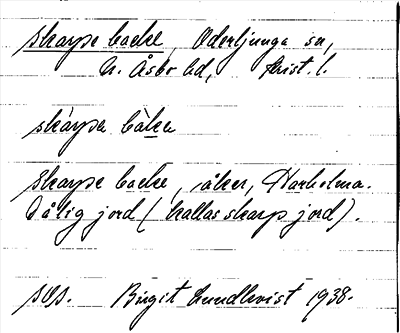 skarpe backe, Oderljunga sn,
N. Åsbo hd, Krist. l.
skàrpa bàka
Skarpe backe, åker, Harholma.
Dålig jord (kallas skarp jord).
Birgit Lundkvist 1938.